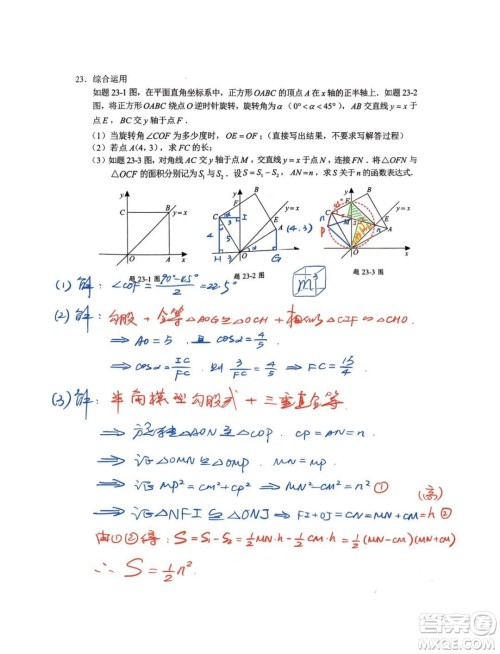 23. 综合运用
如题 23-1 图，在平面直角坐标系中，正方形 OABC 的顶点 A 在 x 轴的正半轴上．如题 23-2
图，将正方形 OABC 绕点 O 逆时针旋转，旋转角为 α（0°＜α＜45°），AB 交直线 y=x 于
点 E，BC 交 y 轴于点 F．
（1）当旋转角∠COF 为多少度时，OE=OF；（直接写出结果，不要求写解答过程）
（2）若点 A(4，3)，求 FC 的长；
（3）如题 23-3 图，对角线 AC 交 y 轴于点 M，交直线 y=x 于点 N，连接 FN．将△OFN 与
△OCF 的面积分别记为 S₁ 与 S₂．设 S=S₁−S₂，AN=n，求 S 关于 n 的函数表达式．
y
C B y=x
O A x
题 23-1 图
y B y=x
F E
C I
4 3 A (4.3)
H 3 O G x
题 23-2 图
y B
F E y=x
C N
M A
P O x
题 23-3 图
m³
(1) 解：∠COF = 90°-45° / 2 = 22.5°
(2) 解：勾股 + 全等 △AOG ≌ △OCH + 相似 △CIF ∽ △CHO
⇒ AO = 5 ⇒ cosα = 4/5
⇒ cosα = IC/FC ⇒ 3/FC = 4/5 ⇒ FC = 15/4
(3) 解：半角模型勾股式 + 三垂直全等
⇒ 旋转 △AON ≌ △COP CP = AN = n
⇒ 证 △OMN ≌ △OMP MN = MP
⇒ 证 MP² = CM² + CP² ⇒ MN² - CM² = n² ①
⇒ 证 △NFI ≌ △ONJ ⇒ FI + OJ = CM + MN = h ② (高)
由①②得：S = S₁ - S₂ = 1/2 MN·h - 1/2 CM·h = 1/2 (MN-CM)(MN+CM)
∴ S = 1/2 n²